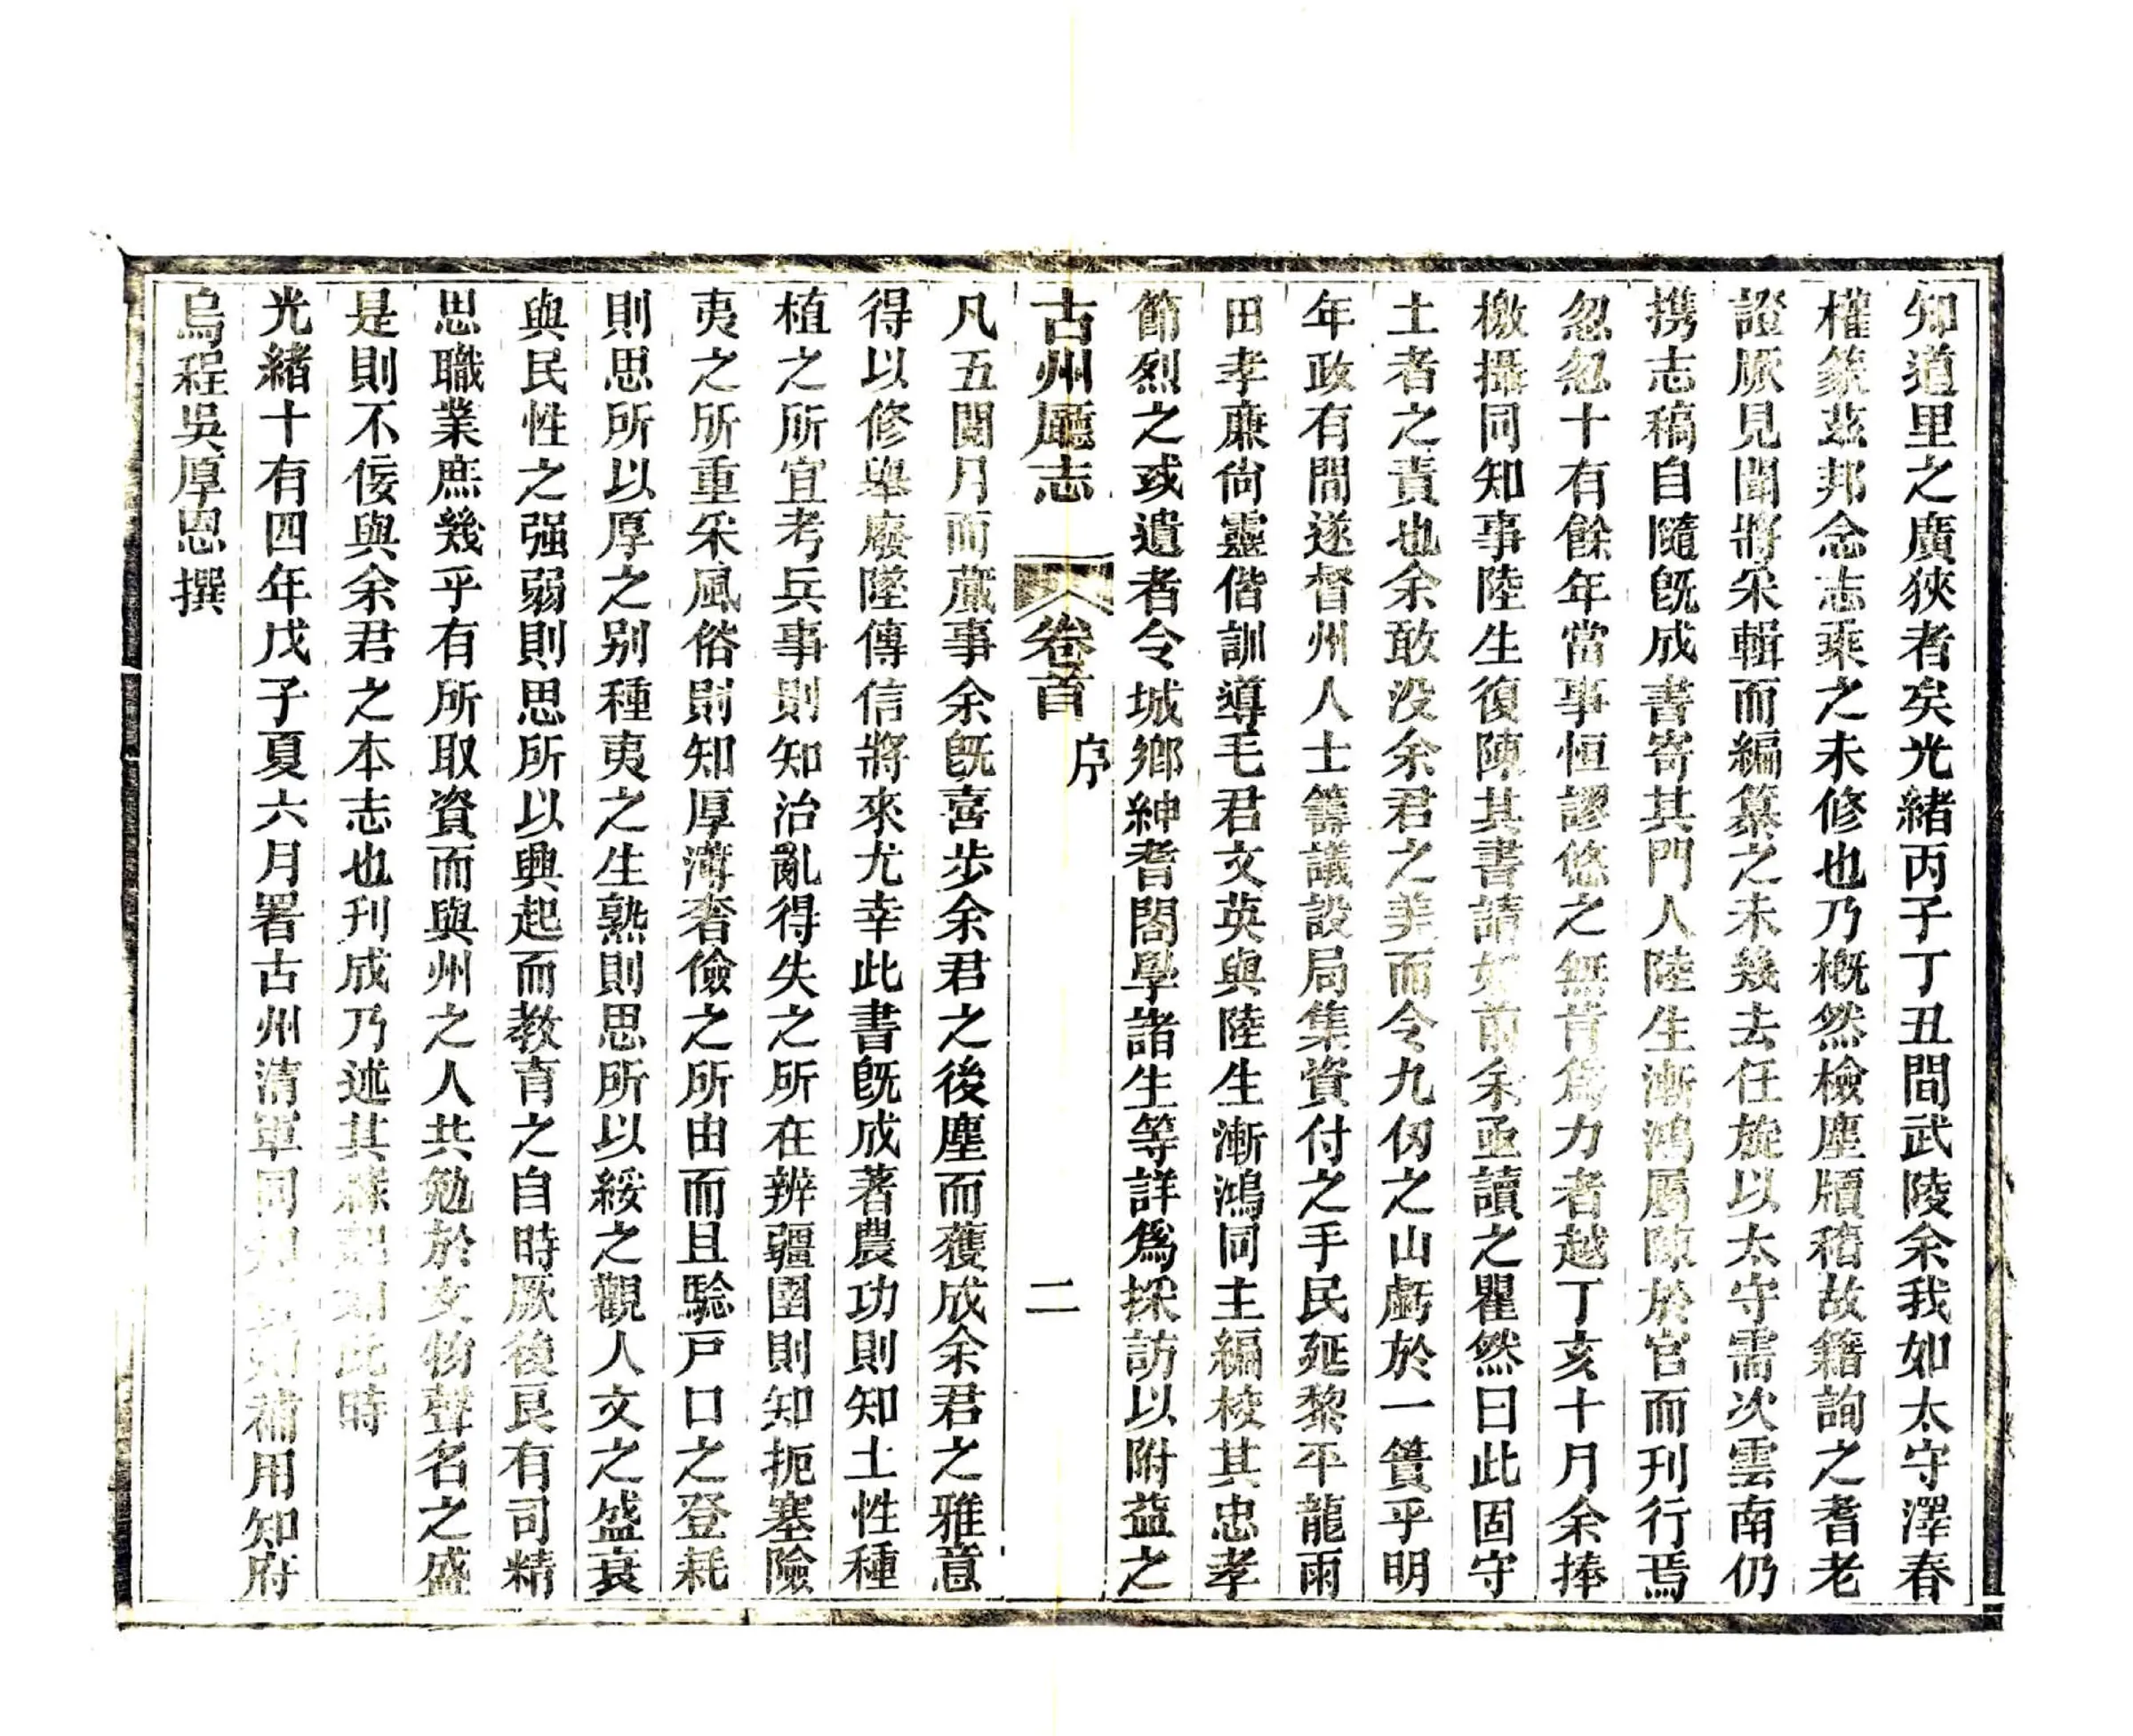 知道里之廣狹者矣光緒丙子丁丑間武陵余我如太守澤春
權篆茲邦念志乘之未修也乃槪然檢塵牘稽故籍詢之耆老
證厥見聞將采輯而編纂之未幾去任旋以太守需次雲南仍
携志稿自隨旣成書寄其門人陸生漸鴻屬陳於官而刊行焉
忽忽十有餘年當事恒謬悠之無肯爲力者越丁亥十月余捧
檄攝同知事陸生復陳其書請如前余亟讀之瞿然曰此固守
土者之責也余敢没余君之美而令九仞之山虧於一簣乎明
年政有間遂督州人士籌議設局集資付之手民延黎平龍雨
田孝廉尙靈偕訓導毛君文英與陸生漸鴻同主編校其忠孝
節烈之或遺者令城鄉紳耆閤學諸生等詳爲採訪以附益之
古州廳志 卷首 序 二
凡五閱月而蕆事余旣喜步余君之後塵而獲成余君之雅意
得以修舉廢墜傳信將來尤幸此書旣成著農功則知土性種
植之所宜考兵事則知治亂得失之所在辨疆圉則知扼塞險
夷之所重采風俗則知厚薄奢儉之所由而且騐戸口之登耗
則思所以厚之别種夷之生熟則思所以綏之觀人文之盛衰
與民性之强弱則思所以興起而教育之自時厥後良有司精
思職業庶幾乎有所取資而與州之人共勉於文物聲名之盛
是則不佞與余君之本志也刊成乃述其緣起如此時
光緒十有四年戊子夏六月署古州清軍同知補用知府
烏程吳厚恩撰